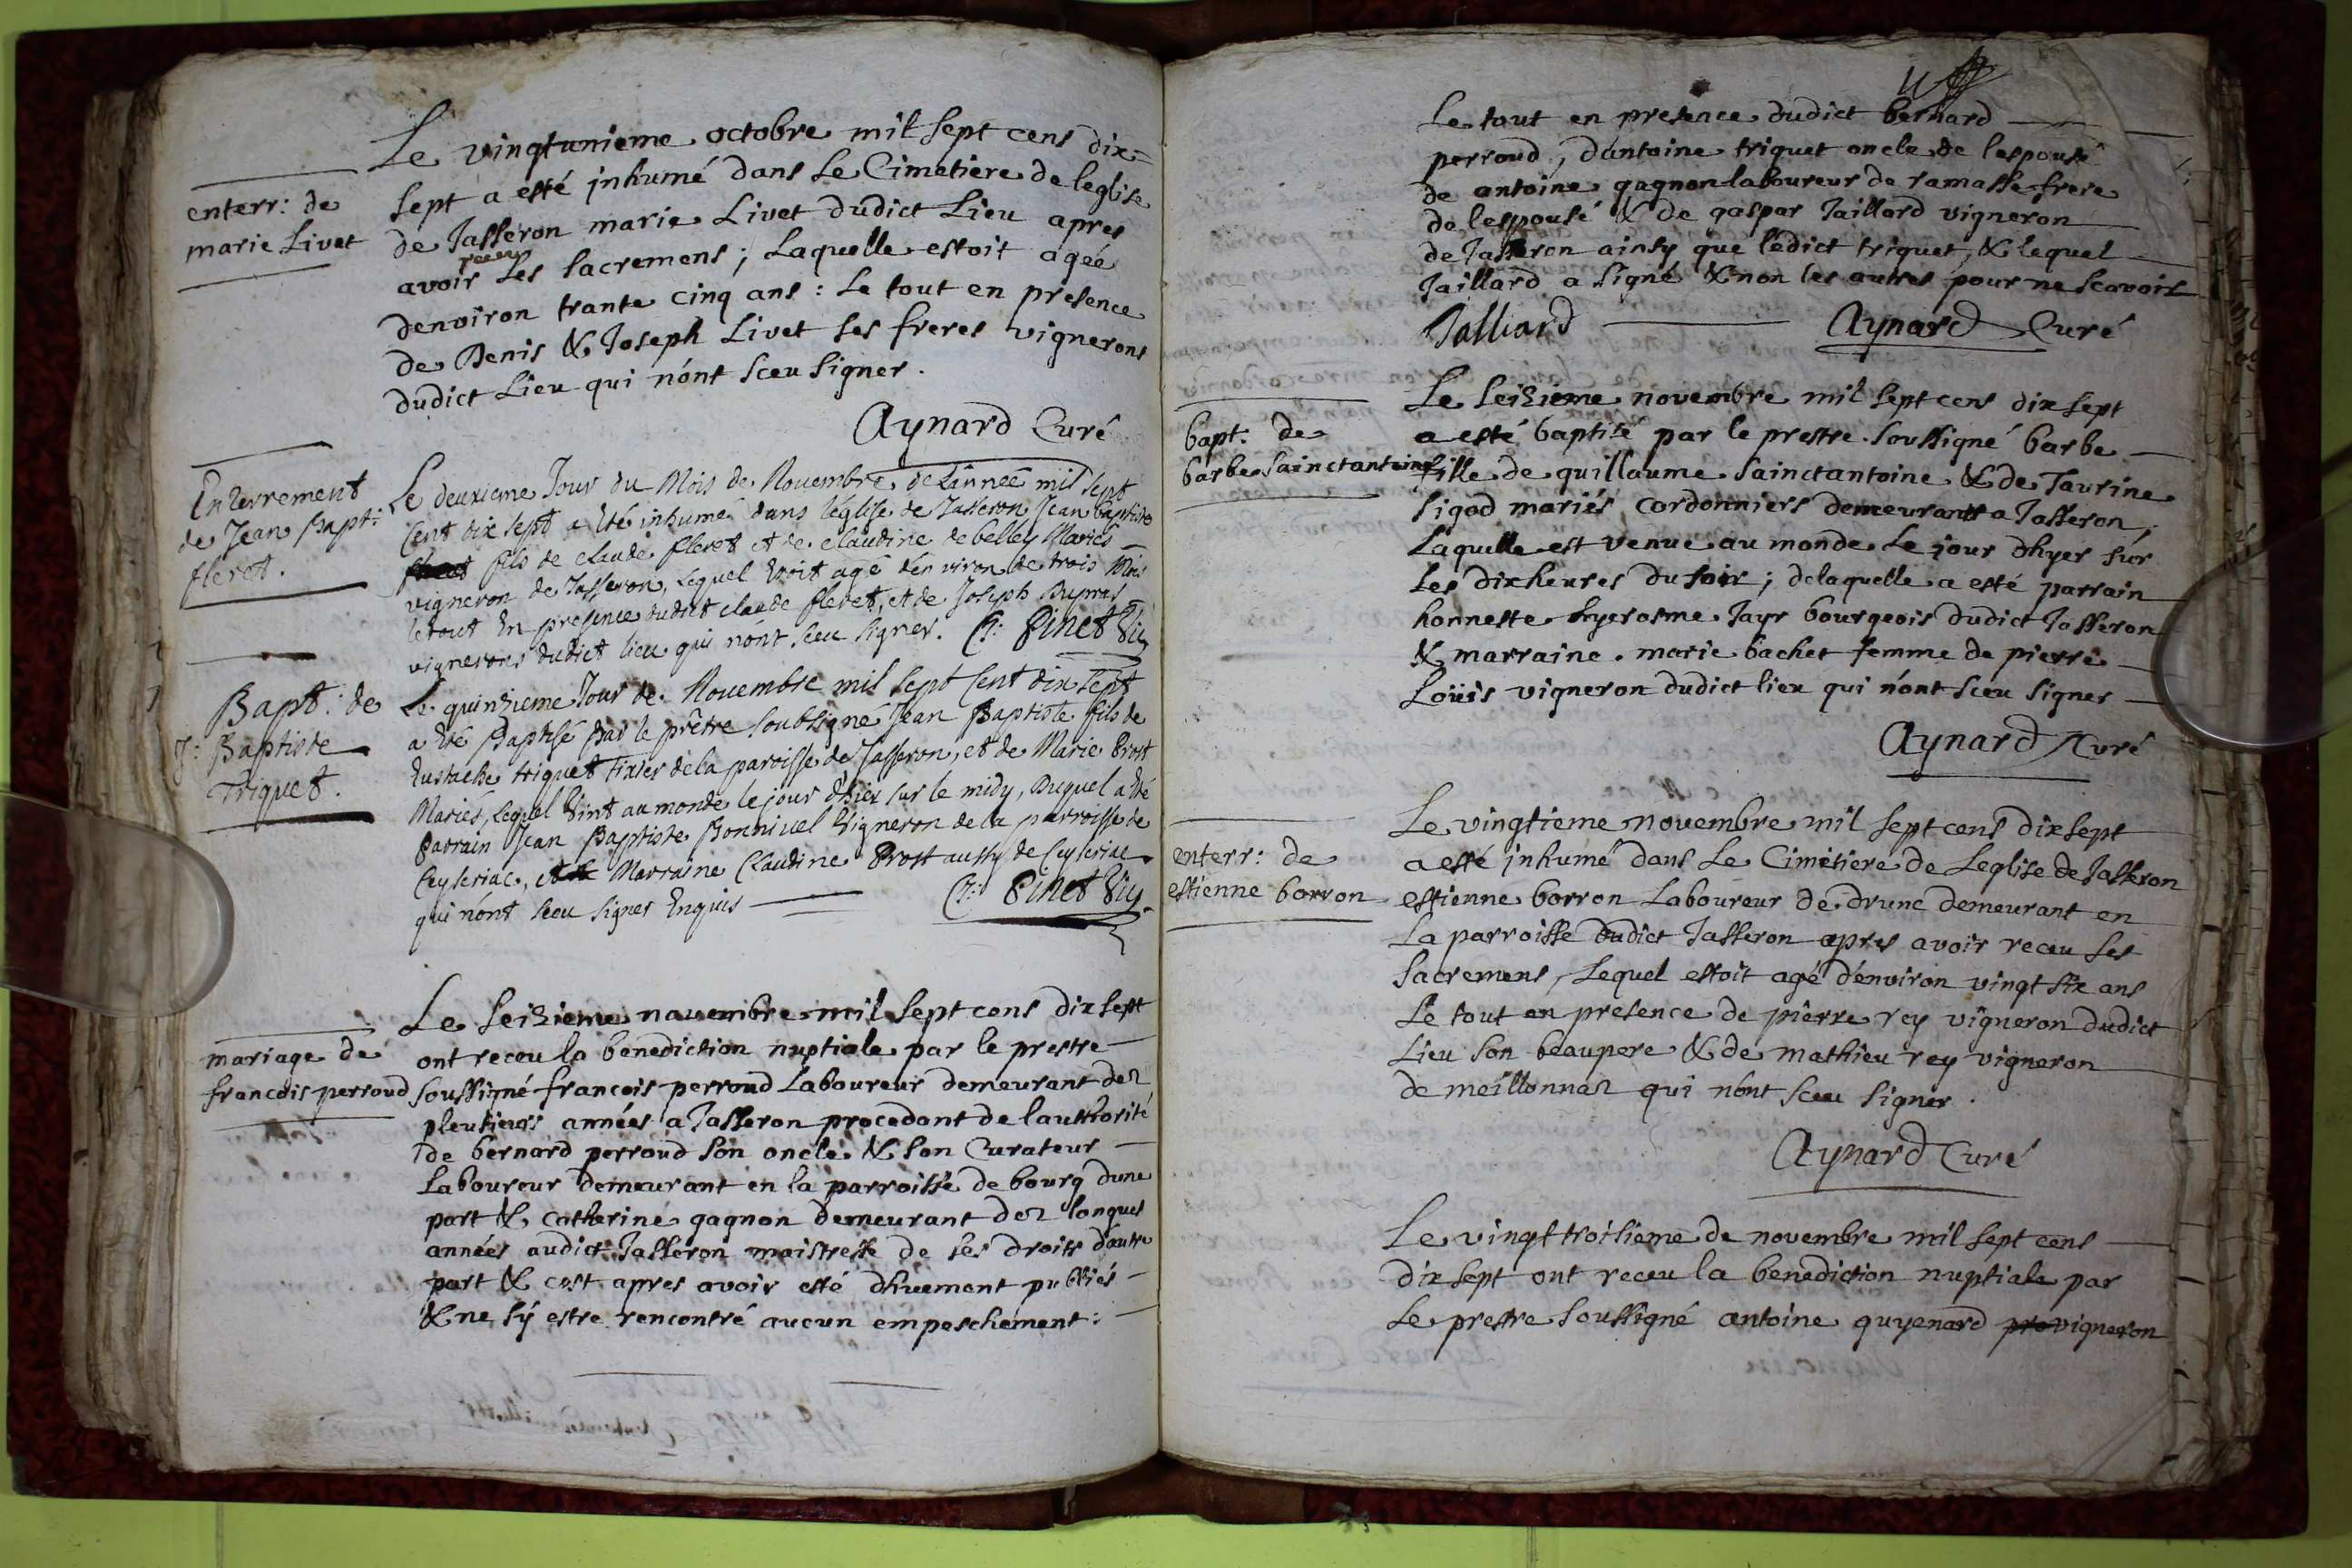 Le vingtunieme octobre mil sept cens dix=
sept a esté jnhumé dans Le Cimetiere de leglise
enterr: de
marie Livet
de Jasseron marie Livet dudict Lieu apres
receu
avoir Les sacremens ; Laquelle estoit agée
denviron trante cinq ans : Le tout en presence
de Denis & Joseph Livet ses freres vignerons
dudict Lieu qui n'ont sceu signer .
Aynard Curé
Enterrement
de Jean Bapt:
fleret.
Le deuxieme Jour du Mois de Nouembre de L'année mil sept
Cent dix sept a Eté inhumé dans l'église de Jasseron Jean baptiste
fils de claude fleret et de claudine de belley Mariés
vigneron de Jasseron, Lequel Etoit agé d'en viron de trois Mois
letout En presence dudict claude fleret, et de Joseph Dupras
vignerons dudict lieu qui n'ont sceu signer. C: Pinet Vic
Bapt: de
J: Baptiste
Triquet.
Le quinzieme Jour de Nouembre mil sept Cent dix sept
a Eté Baptisé Par le prêtre soubsigné Jean Baptiste fils de
Eustache triquet Tixier de la paroisse de Jasseron, et de Marie Prost
Mariés, Lequel Vint au monde le jour d'hier sur le midy, Duquel a Eté
Parrain Jean Baptiste Bonnivel Vigneron de la parroisse de
Ceyseriac, Marraine Claudine Prost aussy de Ceyseriac
qui n'ont sceu signer Enquis
C: Pinet Vic
mariage de
francois perroud
Le seizieme nauembre mil sept cens dix sept
ont receu la benediction nuptiale par le prestre
soussigné francois perroud Laboureur demeurant dez
pleusieurs années a Jasseron procedant de lauthorité
de bernard perroud son oncle & son Curateur
Laboureur demeurant en la parroisse de bourg dune
part & catherine gagnon demeurant dez longues
années audict Jasseron maistresse de ses droits d'autre
part & cest apres avoir esté dhuement publiés
& ne sÿ estre rencontré aucun empeschement :
Le tout en presence dudict bernard
perroud, d'antoine triquet oncle de lespousé
de antoine gagnon laboureur de ramasse frere
de lespousé & de gaspar Jaillard vigneron
de Jasseron ainsy que ledict triquet, & lequel
Jaillard a signé & non les autres pour ne scavoir
Jalliard Aynard Curé
bapt: de
barbe sainctantoine
Le seizieme novembre mil sept cens dix sept
a esté baptisé par le prestre soussigné barbe
fille de guillaume sainctantoine & de Taurine
sigod mariés, cordonniers demeurants a Jasseron,
Laquelle est venue au monde Le jour dhyer sur
Les dix heures du soir ; de laquelle a esté parrain
honneste hyerosme Jayr bourgeois dudict Jasseron
& marraine . marie bachet femme de pierre
Loüis vigneron dudict lieu qui n'ont sceu signer
Aynard Curé
enterr: de
estienne borron
Le vingtieme novembre mil sept cens dix sept
a esté jnhumé dans Le Cimetiere de Leglise de Jasseron
estienne borron Laboureur de drunc demeurant en
La parroisse dudict Jasseron apres avoir receu ses
sacremens, Lequel estoit agé d'environ vingt six ans
Le tout en presence de pierre rey vigneron dudict
Lieu son beaupere & de mathieu rey vigneron
de meillonnaz qui n'ont sceu signer .
Aynard Curé
Le vingt troisieme de novembre mil sept cens
dix sept ont receu la benediction nuptiale par
Le prestre soussigné antoine guyenard pro vigneron